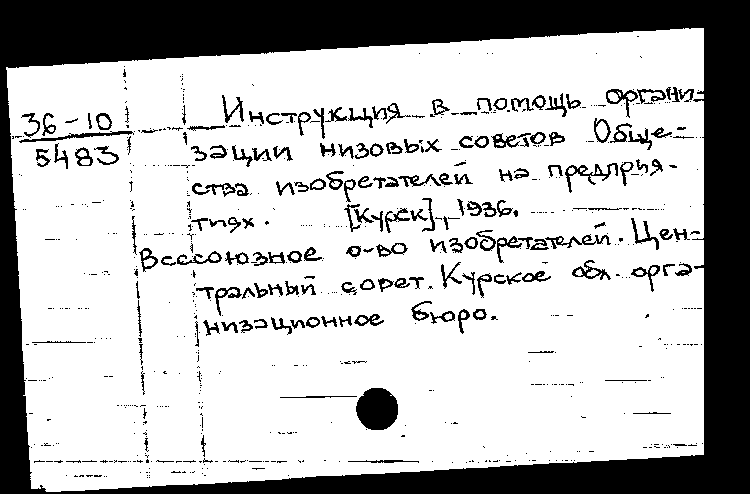 36-10
5483
Инструкция в помощь органи-
зации низовых советов Обще-
ства изобретателей на предприя-
тиях. [Курск], 1936.
Всесоюзное о-во изобретателей. Цен-
тральный совет. Курское обл. орга-
низационное бюро.